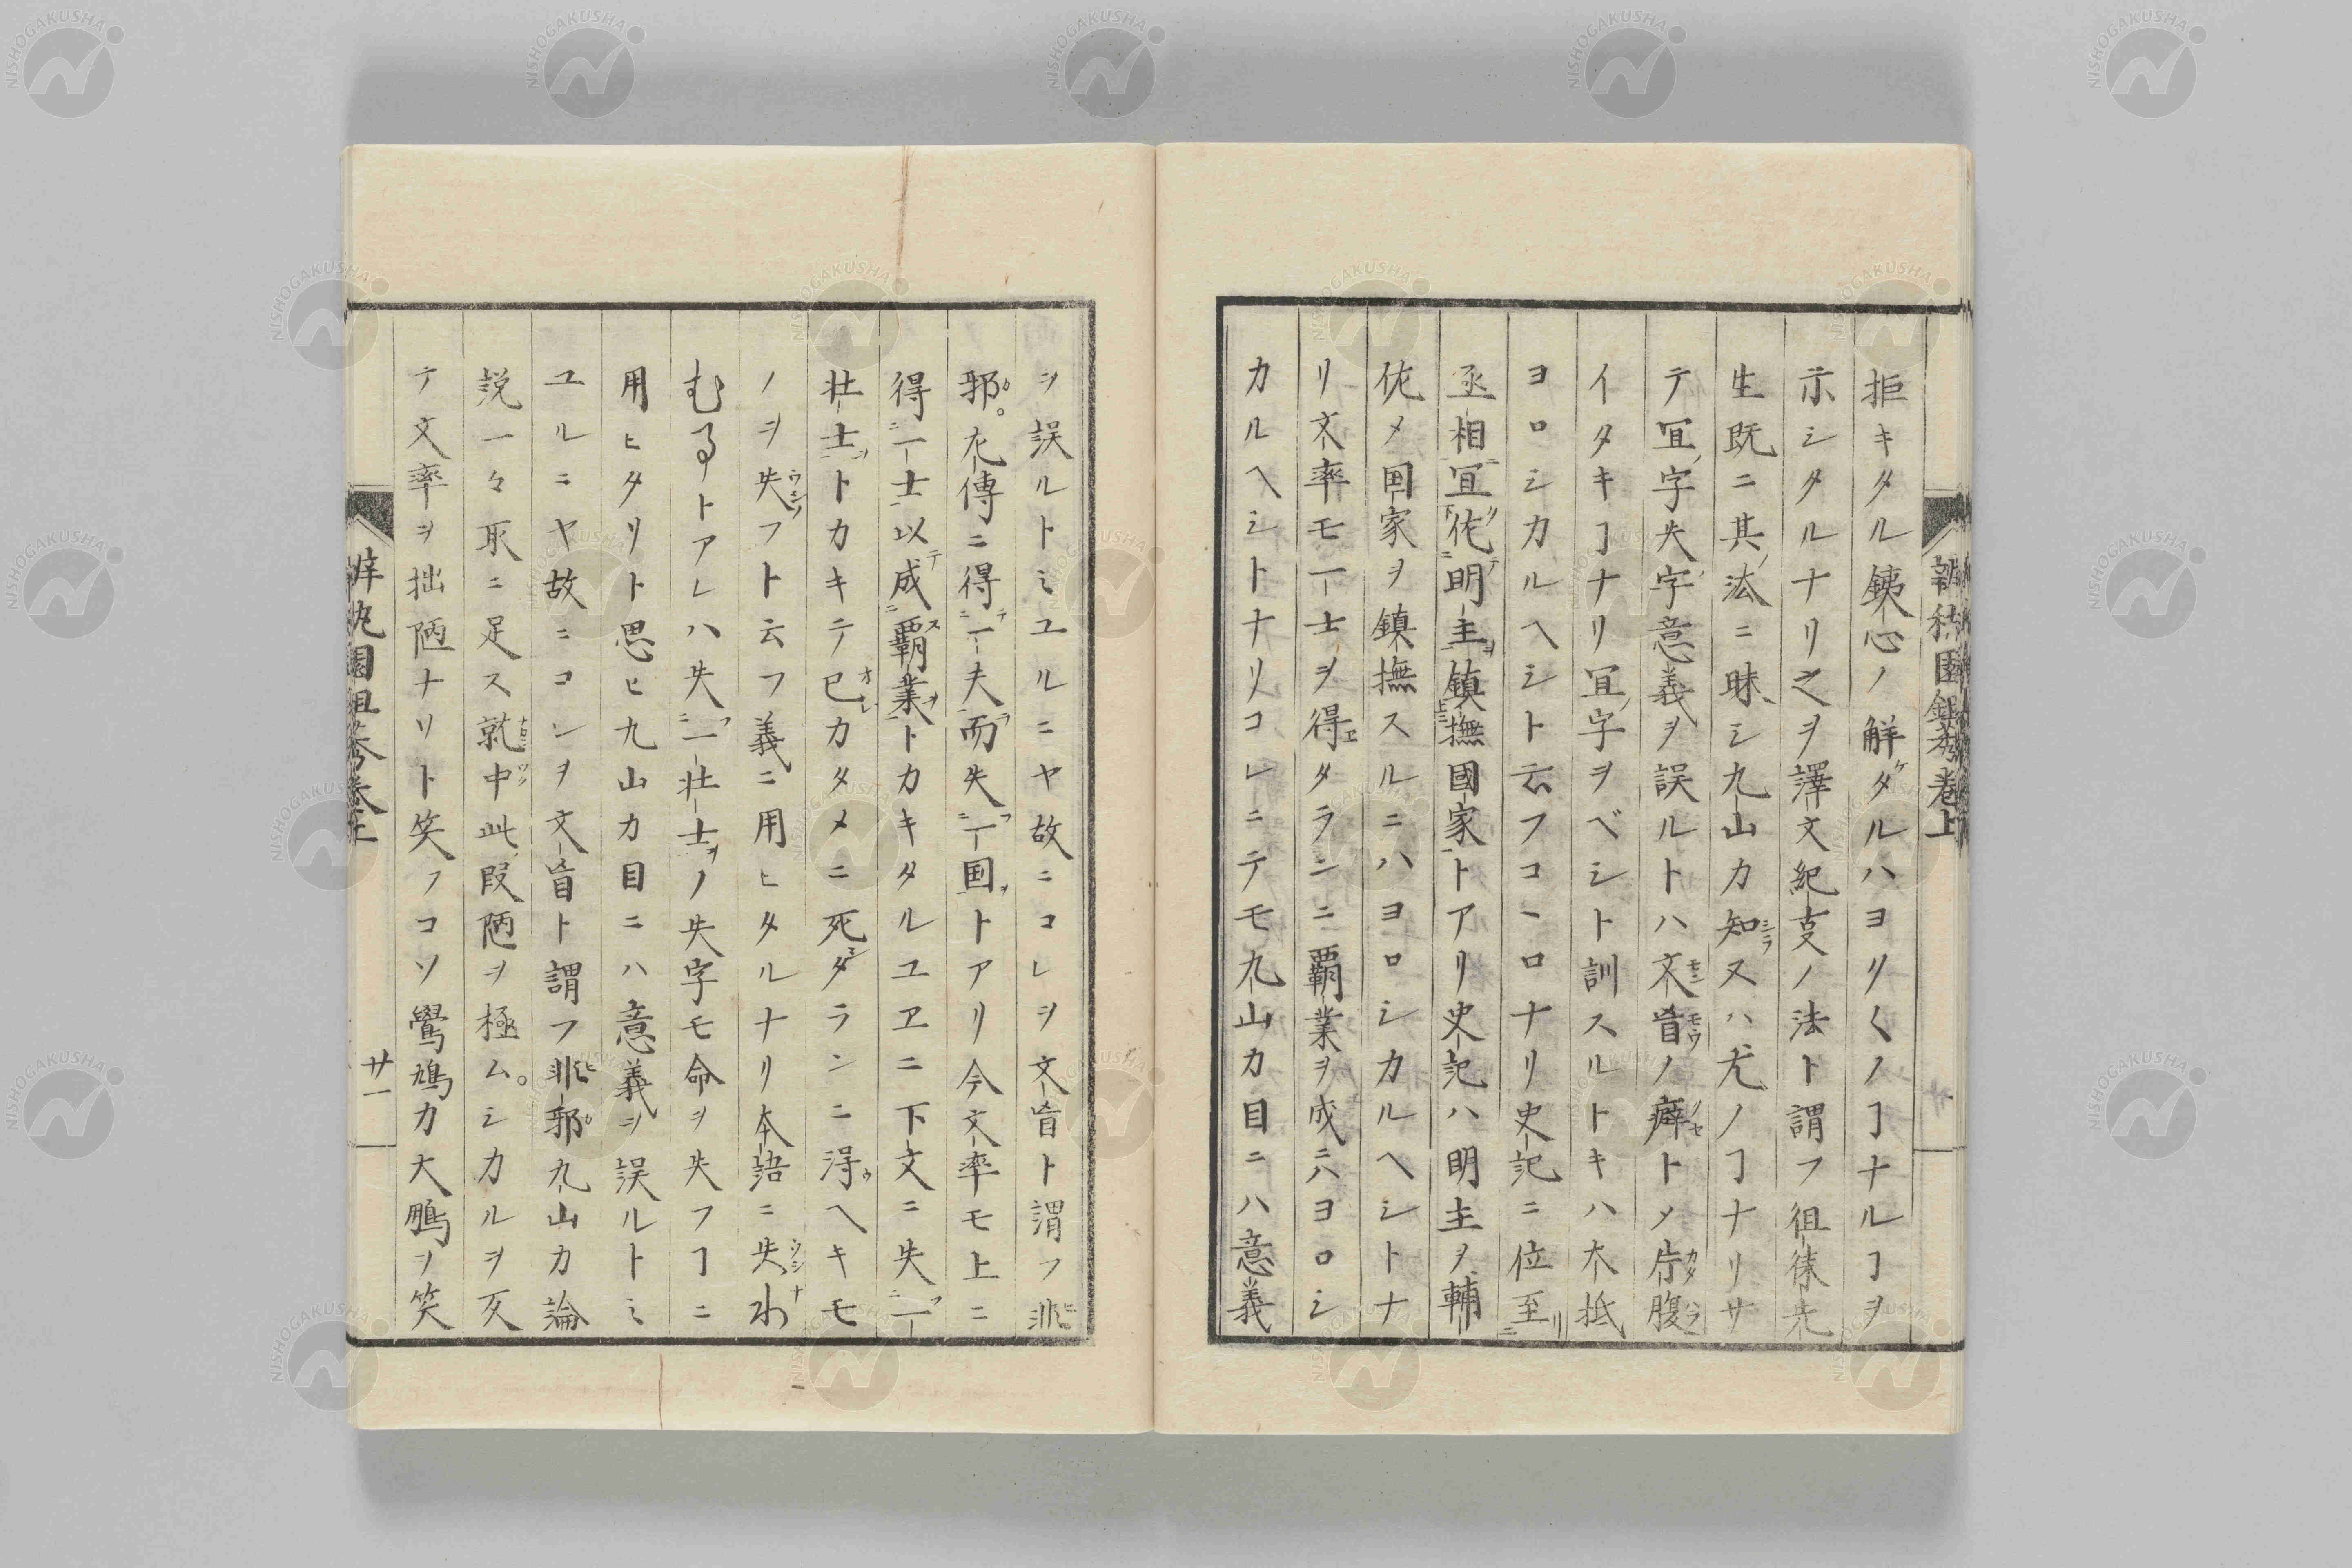 拒キタル銕心ノ解ダルハヨリ〱ノヿナルヿヲ
示シタルナリ之ヲ譯文紀叓ノ法ト謂フ徂徠先
生既ニ其法ニ昧シ九山カ知又ハ尤ノヿナリサ
テ冝字失字意義ヲ誤ルトハ文盲ノ癖トメ片腹
イタキヿナリ冝字ヲベシト訓スルトキハ大抵
ヨロシカルヘシト云フコヽロナリ史記ニ位至
丞相冝佐明主鎮撫國家トアリ史記ハ明主ヲ輔
佐メ国家ヲ鎮撫スルニハヨロシカルヘシトナ
リ文率モ一士ヲ得タランニ覇業ヲ成ニハヨロシ
カルヘシトナリコレニテモ九山カ目ニハ意義
ヲ誤ルトミユルニヤ故ニコレヲ文盲ト謂フ非
邪。左傳ニ得一夫而失一国トアリ今文率モ上ニ
得一士以成覇業トカキタルユヱニ下文ニ失一
壮士トカキテ已カタメニ死タランニ得ヘキモ
ノヲ失フト云フ義ニ用ヒタルナリ本語ニ失わ
むるトアレハ失一壮士ノ失字モ命ヲ失フヿニ
用ヒタリト思ヒ九山カ目ニハ意義ヲ誤ルトミ
ユルニヤ故ニコレヲ文盲ト謂フ非邪九山カ論
説一々取ニ足ス就中此段陋ヲ極ム。シカルヲ反
テ文率ヲ拙陋ナリト笑フコソ鷽鳩カ大鵬ヲ笑
卷上
廿一
NISHOGAKUSHA